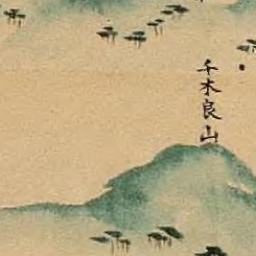 千木良山